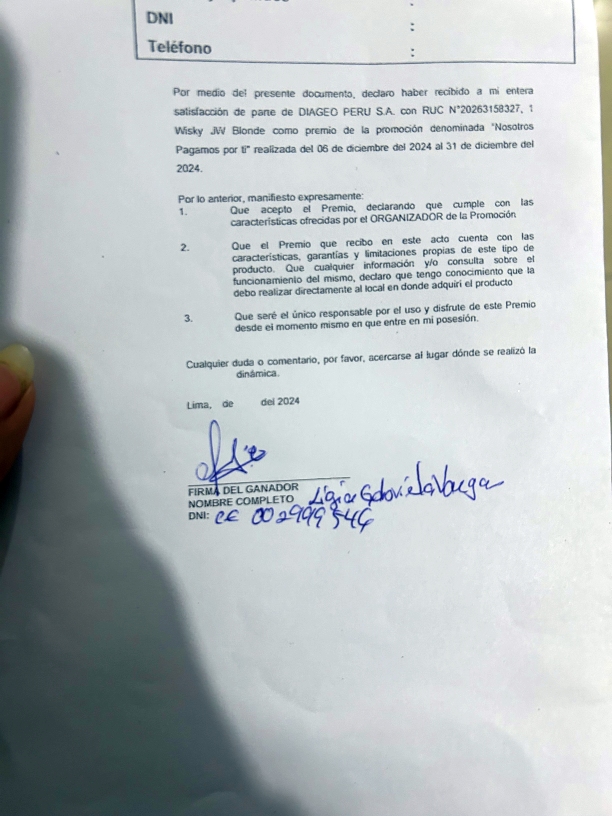 DNI :
Teléfono :
Por medio del presente documento, declaro haber recibido a mi entera
satisfacción de parte de DIAGEO PERU S.A. con RUC N°20263158327, 1
Wisky JW Blonde como premio de la promoción denominada "Nosotros
Pagamos por ti" realizada del 06 de diciembre del 2024 al 31 de diciembre del
2024.
Por lo anterior, manifiesto expresamente:
1. Que acepto el Premio, declarando que cumple con las
características ofrecidas por el ORGANIZADOR de la Promoción
2. Que el Premio que recibo en este acto cuenta con las
características, garantías y limitaciones propias de este tipo de
producto. Que cualquier información y/o consulta sobre el
funcionamiento del mismo, declaro que tengo conocimiento que la
debo realizar directamente al local en donde adquirí el producto
3. Que seré el único responsable por el uso y disfrute de este Premio
desde el momento mismo en que entre en mi posesión.
Cualquier duda o comentario, por favor, acercarse al lugar dónde se realizó la
dinámica.
Lima, de del 2024
FIRMA DEL GANADOR
NOMBRE COMPLETO Ligia Gabriela Vargas
DNI: CE 002999546